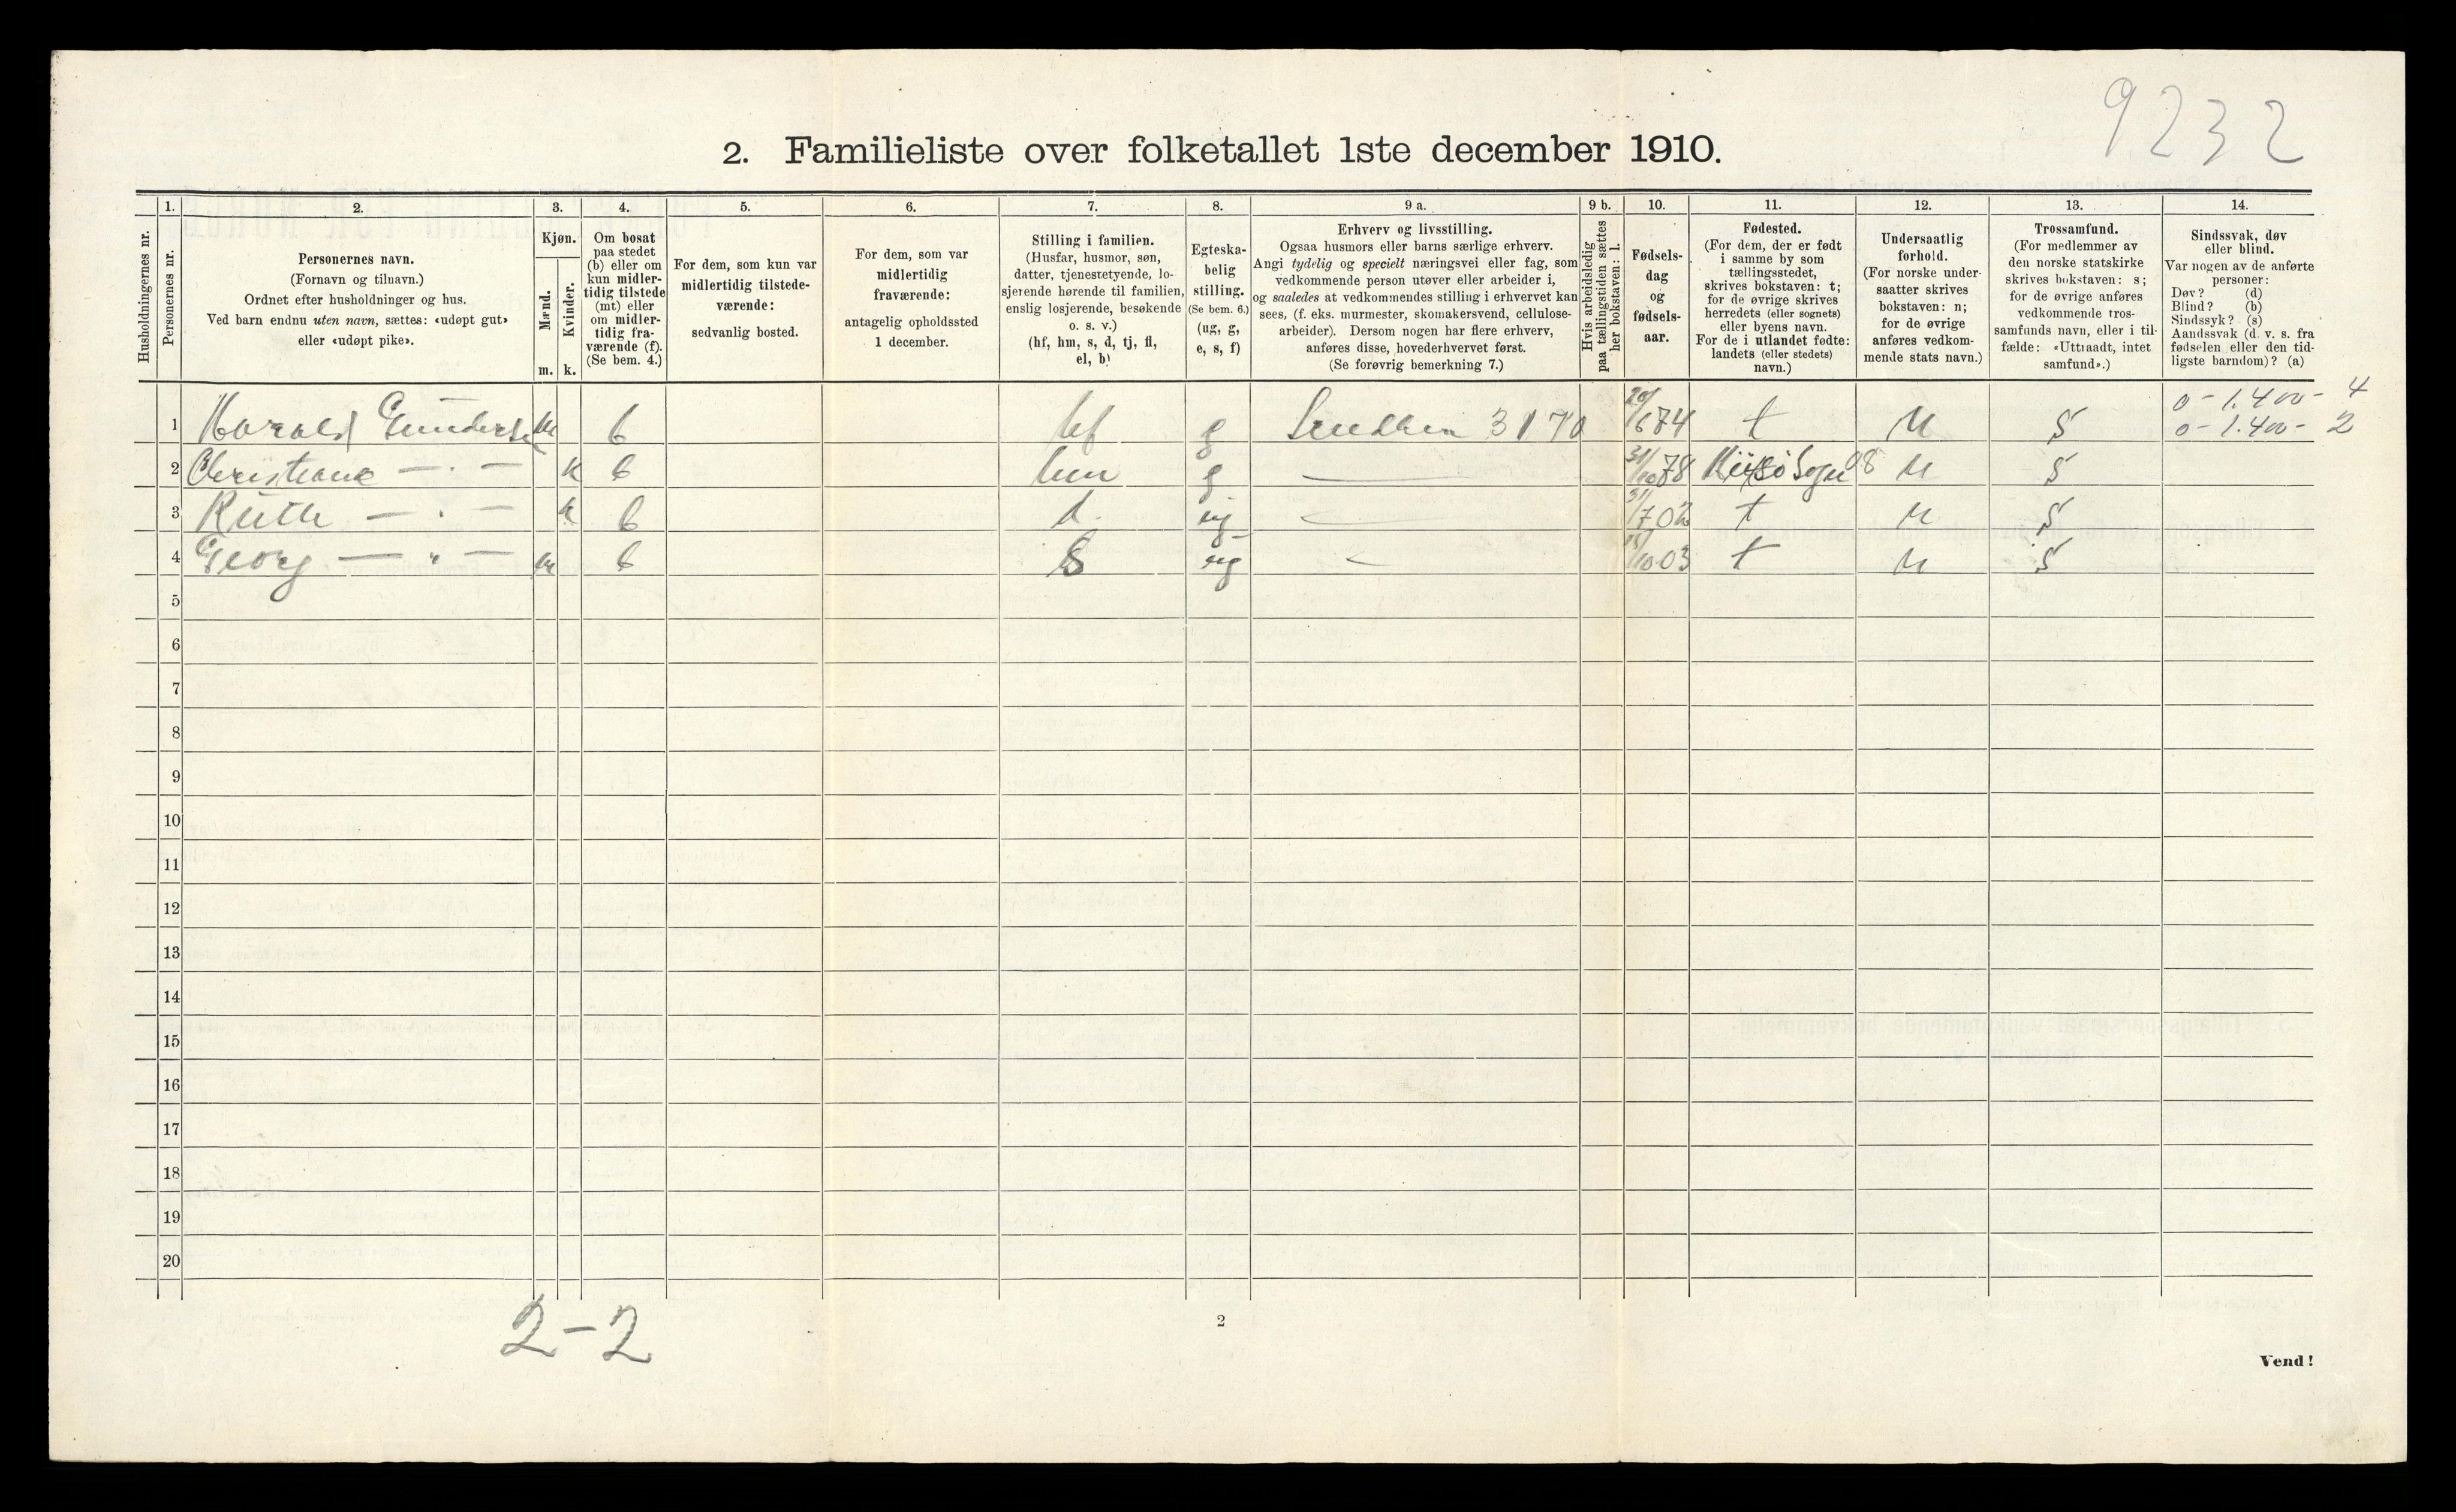 9232
2. Familieliste over folketallet 1ste december 1910.
Husholdningernes nr.
1.
Personernes nr.
2.
Personernes navn.
(Fornavn og tilnavn.)
Ordnet efter husholdninger og hus.
Ved barn endnu uten navn, sættes: «udøpt gut»
eller «udøpt pike».
3.
Kjøn.
Mænd.
m.
Kvinder.
k.
4.
Om bosat
paa stedet
(b) eller om
kun midler-
tidig tilstede
(mt) eller
om midler-
tidig fra-
værende (f).
(Se bem. 4.)
5.
For dem, som kun var
midlertidig tilstede-
værende:
sedvanlig bosted.
6.
For dem, som var
midlertidig
fraværende:
antagelig opholdssted
1 december.
7.
Stilling i familien.
(Husfar, husmor, søn,
datter, tjenestetyende, lo-
sjerende hørende til familien,
enslig losjerende, besøkende
o. s. v.)
(hf, hm, s, d, tj, fl,
el, b)
8.
Egteska-
belig
stilling.
(Se bem. 6.)
(ug, g,
e, s, f)
9 a.
Erhverv og livsstilling.
Ogsaa husmors eller barns særlige erhverv.
Angi tydelig og specielt næringsvei eller fag, som
vedkommende person utøver eller arbeider i,
og saaledes at vedkommendes stilling i erhvervet kan
sees, (f. eks. murmester, skomakersvend, cellulose-
arbeider). Dersom nogen har flere erhverv,
anføres disse, hovederhvervet først.
(Se forøvrig bemerkning 7.)
9 b.
Hvis arbeidsledig
paa tællingstiden sættes
her bokstaven: l.
10.
Fødsels-
dag
og
fødsels-
aar.
11.
Fødested.
(For dem, der er født
i samme by som
tællingsstedet,
skrives bokstaven: t;
for de øvrige skrives
herredets (eller sognets)
eller byens navn.
For de i utlandet fødte:
landets (eller stedets)
navn.)
12.
Undersaatlig
forhold.
(For norske under-
saatter skrives
bokstaven: n;
for de øvrige
anføres vedkom-
mende stats navn.)
13.
Trossamfund.
(For medlemmer av
den norske statskirke
skrives bokstaven: s;
for de øvrige anføres
vedkommende tros-
samfunds navn, eller i til-
fælde: «Uttraadt, intet
samfund».)
14.
Sindssvak, døv
eller blind.
Var nogen av de anførte
personer:
Døv? (d)
Blind? (b)
Sindssyk? (s)
Aandssvak (d. v. s. fra
fødselen eller den tid-
ligste barndom)? (a)
0 - 1.400 - 4
1 Harald Gundersen m b hf g 3170 /6 74 t n s 0 - 1.400 - 2
2 Christiane — " — k b hm g — 31/10 78 08 n s
3 Ruth — " — k b d. ug — 31/7 02 t n s
4 Georg — " — m b s ug — 15/10 03 t n s
5
6
7
8
9
10
11
12
13
14
15
16
17
18
19
20
2-2
2
Vend!